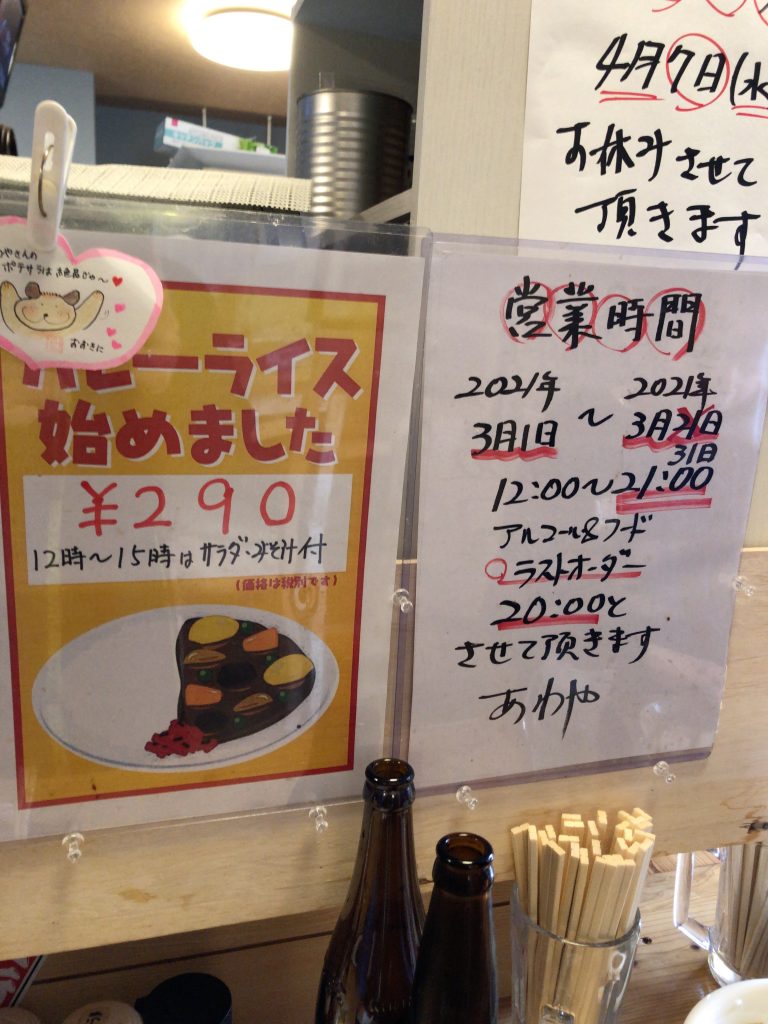 4月7日(水
お休みさせて
頂きます
やさんの
ポテサラは
おおきに
ーライス
始めました
¥290
12時〜15時はサラダ・みそ汁付
(価格は税別です)
営業時間
2021年
3月1日
〜
2021年
3月21日
31日
12:00〜21:00
アルコール&フード
ラストオーダー
20:00と
させて頂きます
あわや